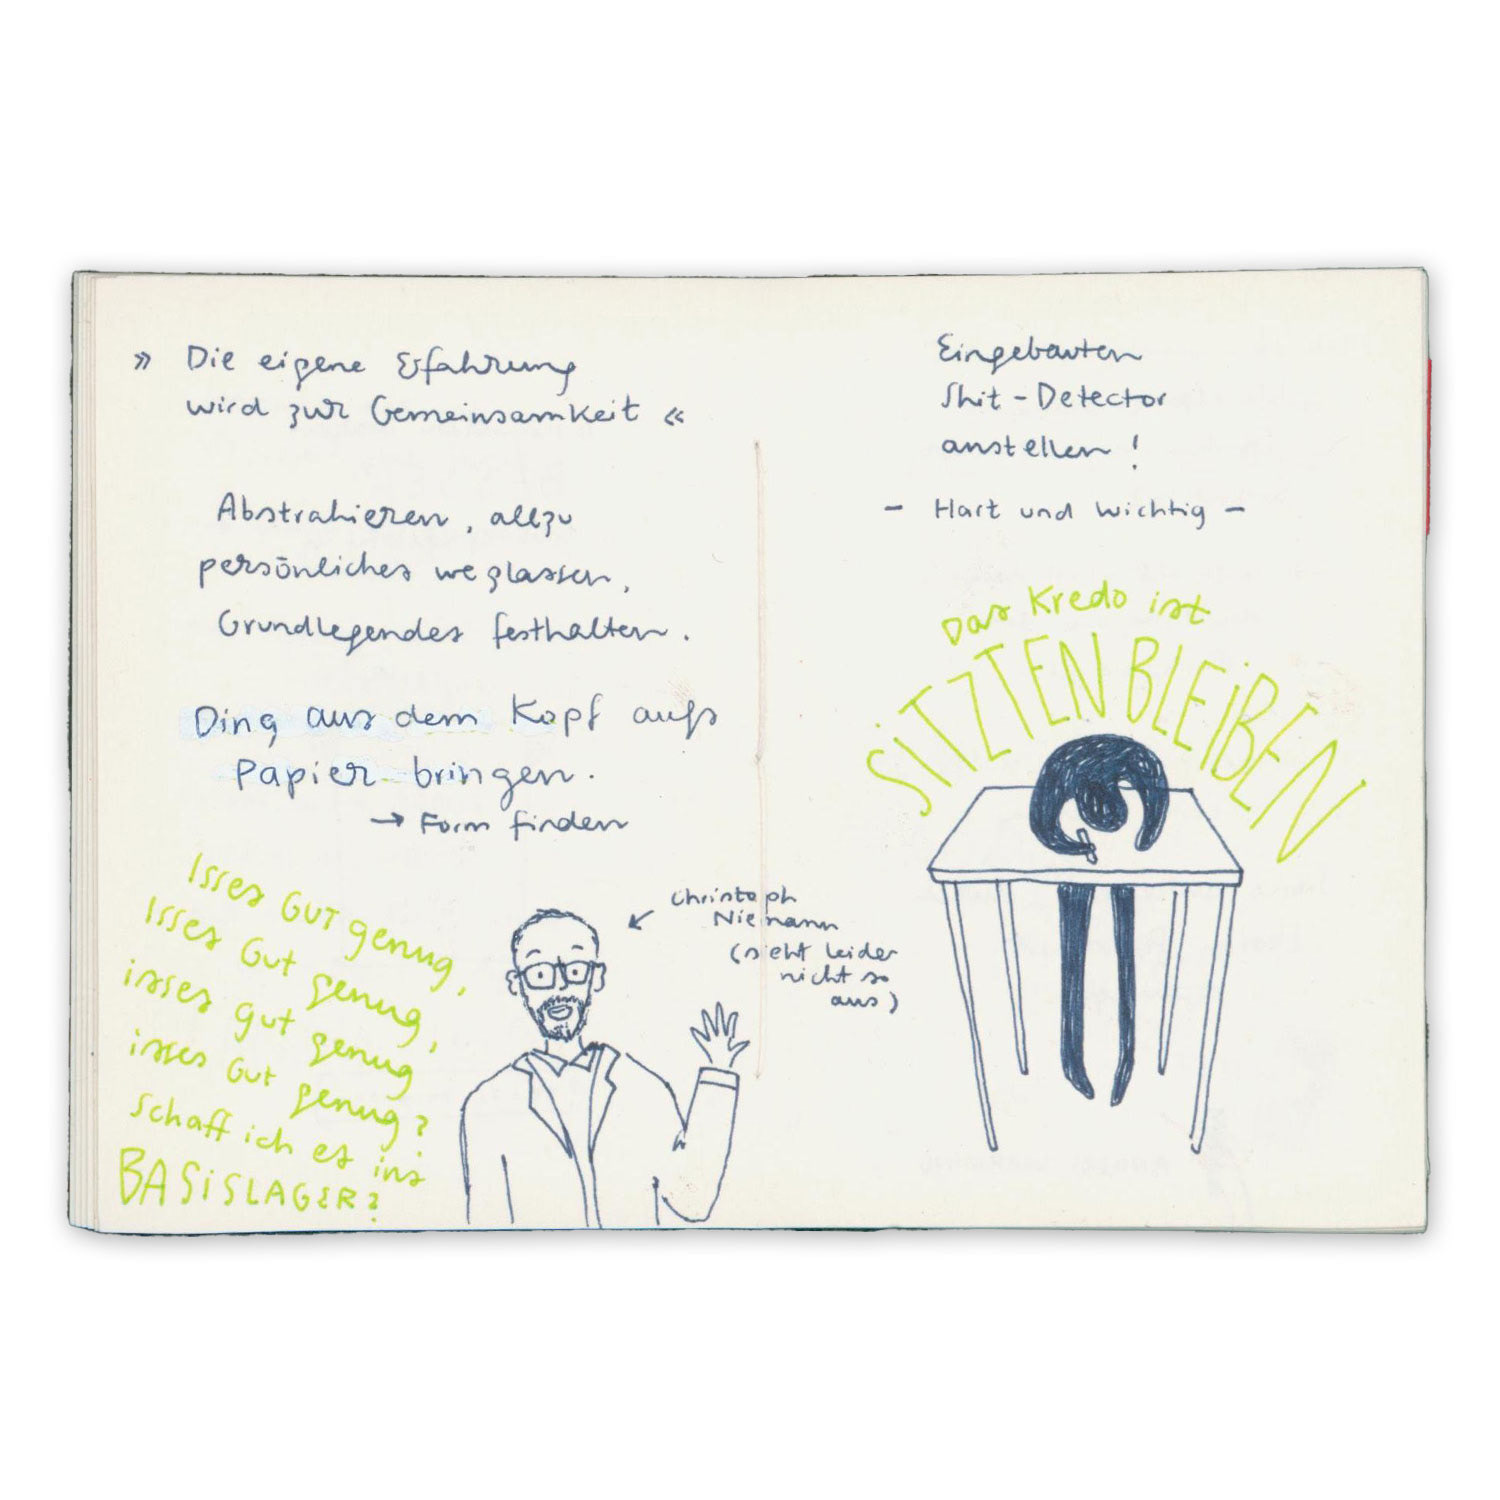 » Die eigene Erfahrung
wird zur Gemeinsamkeit «
Abstrahieren, allzu
persönliches weglassen,
Grundlegendes festhalten.
Ding aus dem Kopf aufs
Papier bringen.
→ Form finden
Isses GUT genug,
Isses Gut genug,
isses gut genug
isses Gut genug?
Schaff ich es ins
BASISLAGER?
Christoph
Niemann
(sieht leider
nicht so
aus)
Eingebauten
Shit-Detector
anstellen!
- Hart und wichtig -
Das Kredo ist
SITZTEN BLEIBEN